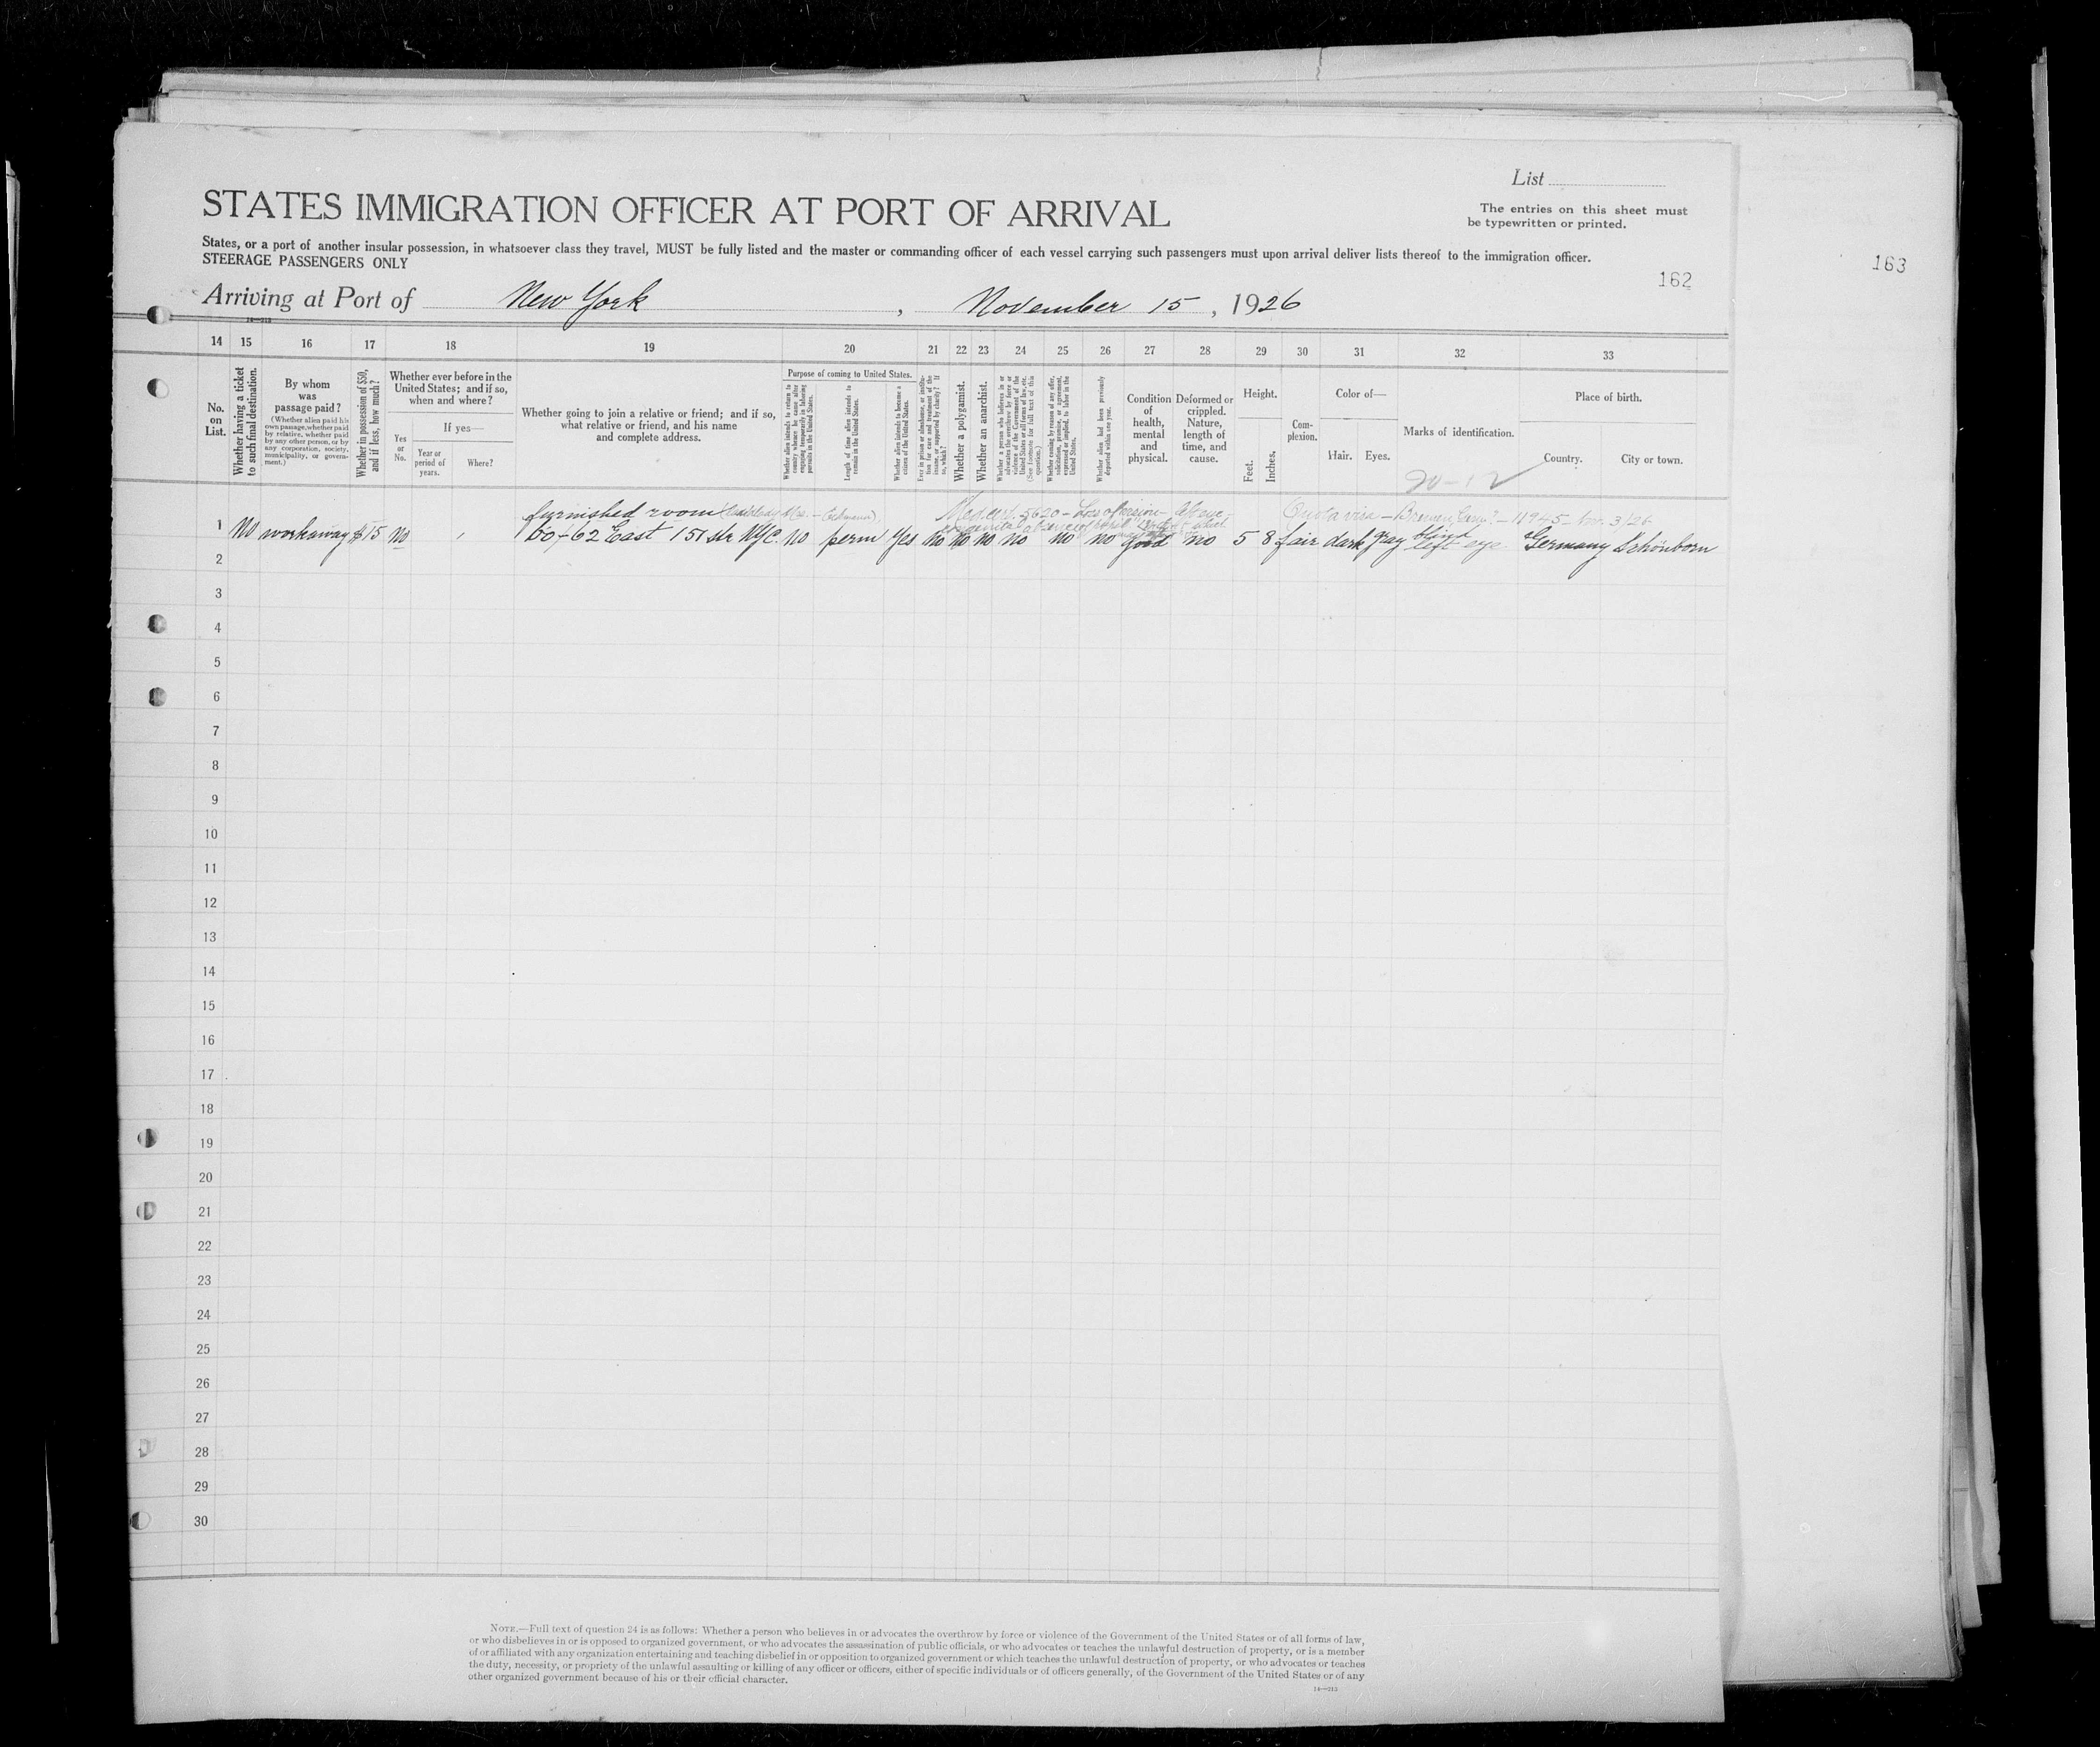 List
STATES IMMIGRATION OFFICER AT PORT OF ARRIVAL
The entries on this sheet must
be typewritten or printed.
States, or a port of another insular possession, in whatsoever class they travel, MUST be fully listed and the master or commanding officer of each vessel carrying such passengers must upon arrival deliver lists thereof to the immigration officer.
STEERAGE PASSENGERS ONLY
163
162
Arriving at Port of New York, November 15, 1926
14—213
14 15 16 17 18 19 20 21 22 23 24 25 26 27 28 29 30 31 32 33
No. on List.
Whether having a ticket to such final destination.
By whom was passage paid?
(Whether alien paid his own passage, whether paid by relative, whether paid by any other person, or by any corporation, society, municipality, or government.)
Whether in possession of $50, and if less, how much?
Whether ever before in the United States; and if so, when and where?
Yes or No.
If yes—
Year or period of years.
Where?
Whether going to join a relative or friend; and if so, what relative or friend, and his name and complete address.
Purpose of coming to United States.
Whether alien intends to return to country whence he came after engaging temporarily in laboring pursuits in the United States.
Length of time alien intends to remain in the United States.
Whether alien intends to become a citizen of the United States.
Ever in prison or almshouse, or institution for care and treatment of the insane, or supported by charity? If so, which?
Whether a polygamist.
Whether an anarchist.
Whether a person who believes in or advocates the overthrow by force or violence of the Government of the United States or all forms of law, etc. (See footnote for full text of this question.)
Whether coming by reason of any offer, solicitation, promise, or agreement, expressed or implied, to labor in the United States.
Whether alien had been previously deported within one year.
Condition of health, mental and physical.
Deformed or crippled. Nature, length of time, and cause.
Height.
Feet. Inches.
Complexion.
Color of—
Hair. Eyes.
Marks of identification.
20-12
Place of birth.
Country. City or town.
furnished room Med. cert. 5620 - Loss of vision - above visa - Bremen, - 11945 - Nov. 3/26
1 No workaway $15 No 60-62 East 151 str NYC. no perm Yes no no no no no no good no 5 8 fair dark gray blind left eye Germany Schönborn
2
3
4
5
6
7
8
9
10
11
12
13
14
15
16
17
18
19
20
21
22
23
24
25
26
27
28
29
30
NOTE.—Full text of question 24 is as follows: Whether a person who believes in or advocates the overthrow by force or violence of the Government of the United States or of all forms of law,
or who disbelieves in or is opposed to organized government, or who advocates the assassination of public officials, or who advocates or teaches the unlawful destruction of property, or is a member
of or affiliated with any organization entertaining and teaching disbelief in or opposition to organized government or which teaches the unlawful destruction of property, or who advocates or teaches
the duty, necessity, or propriety of the unlawful assaulting or killing of any officer or officers, either of specific individuals or of officers generally, of the Government of the United States or of any
other organized government because of his or their official character.
14—213